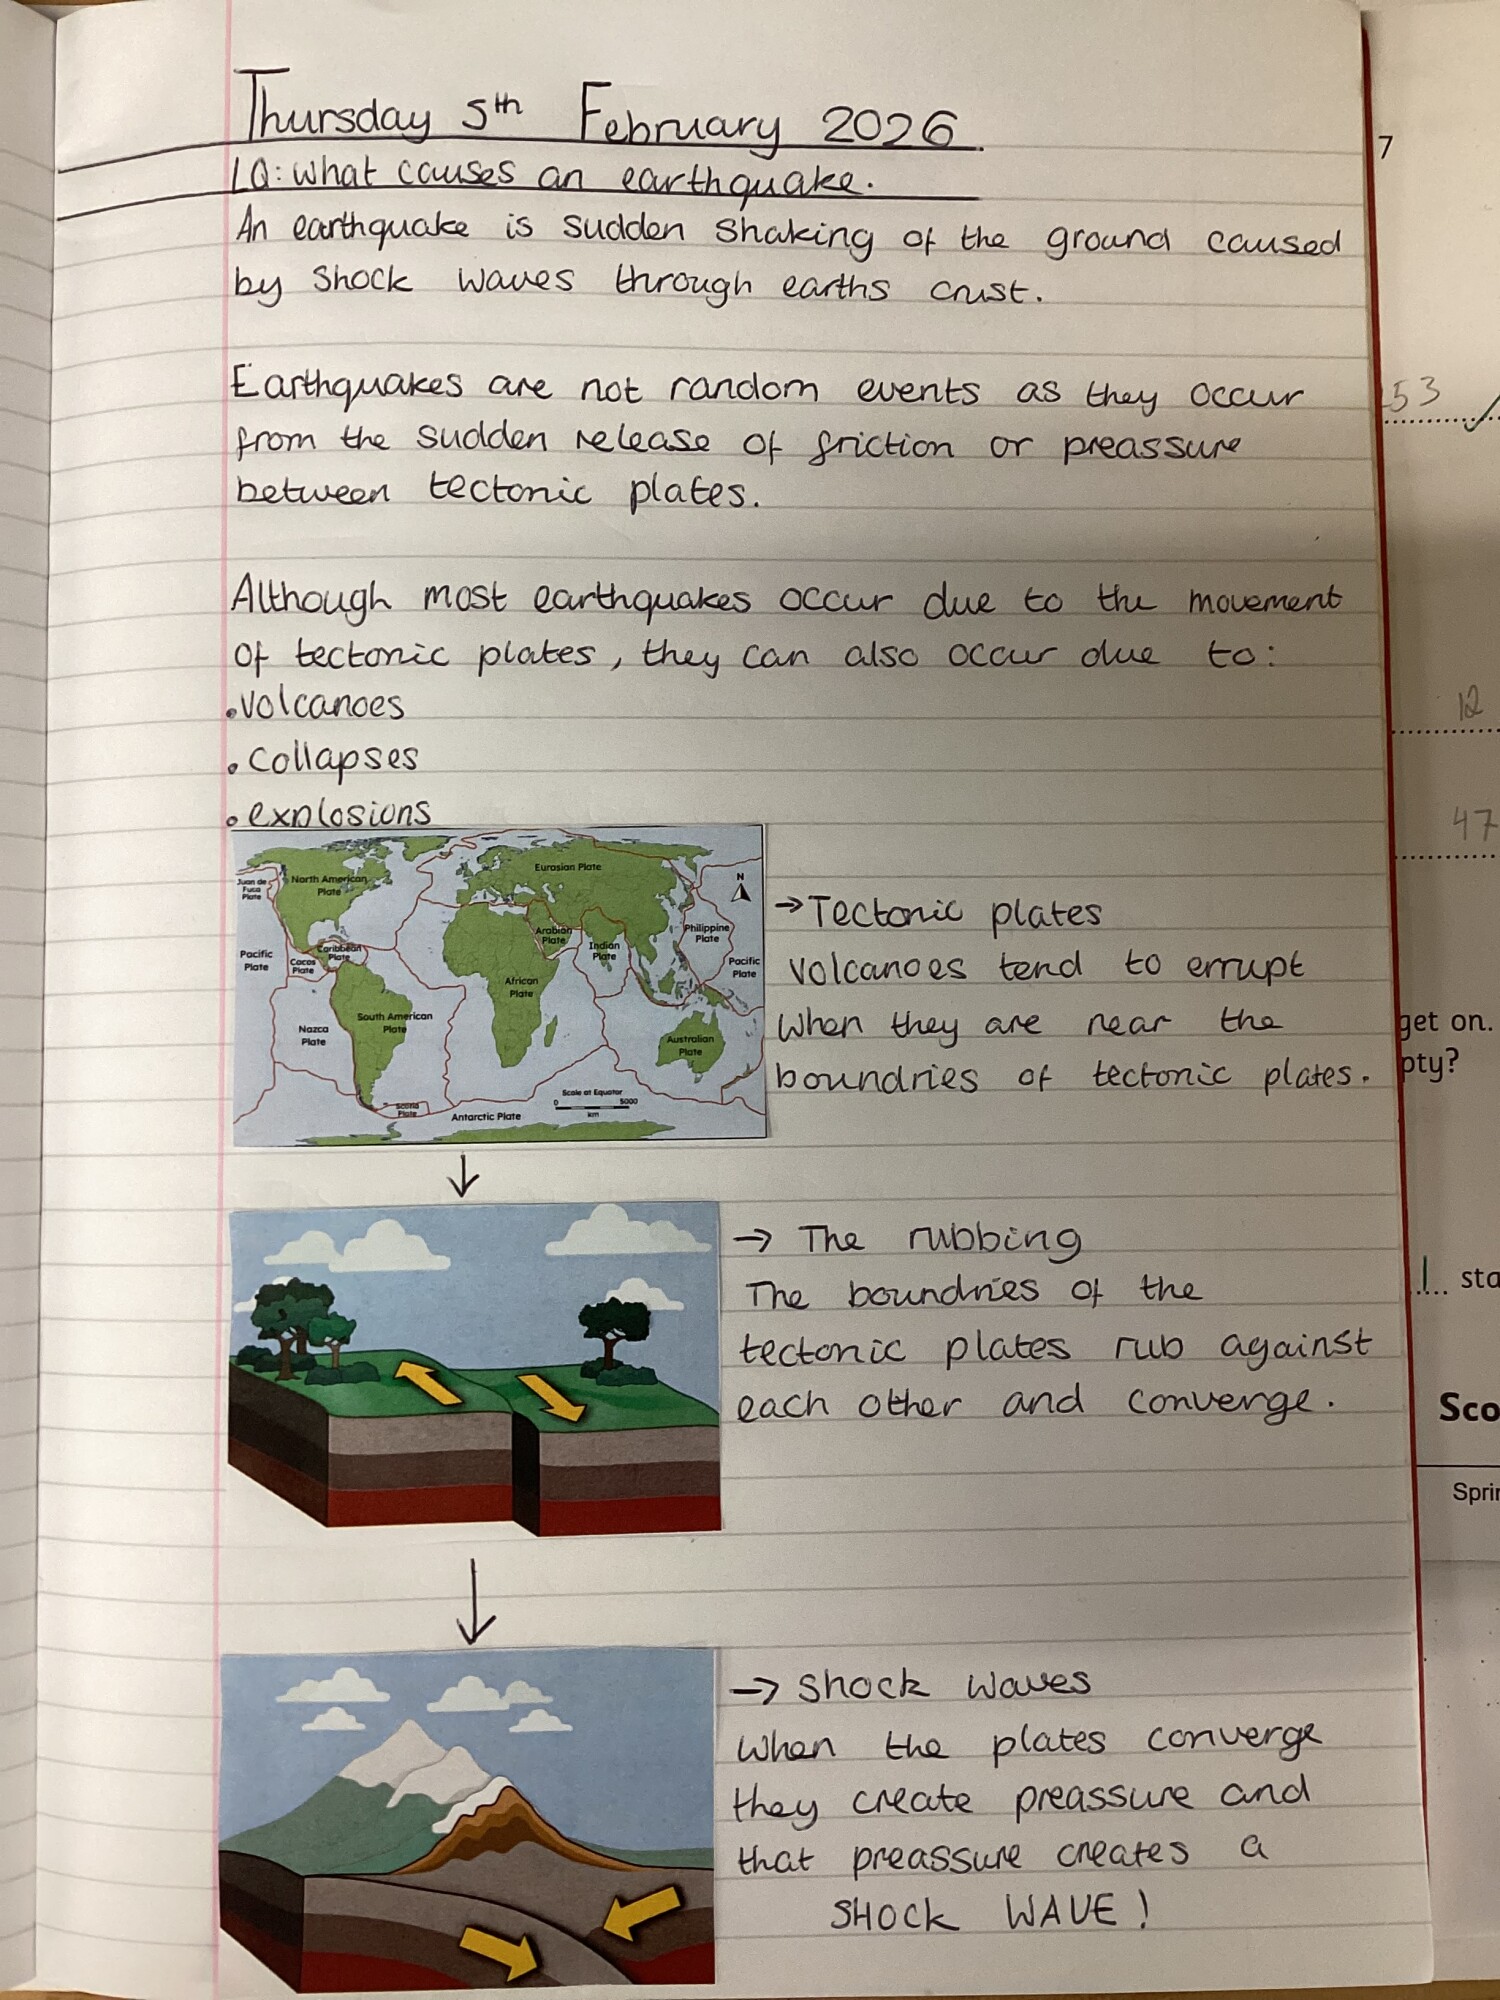 Thursday 5th February 2026
LQ: What causes an earthquake.
An earthquake is sudden shaking of the ground caused
by shock waves through earths crust.
Earthquakes are not random events as they occur
from the sudden release of friction or preassure
between tectonic plates.
Although most earthquakes occur due to the movement
of tectonic plates, they can also occur due to:
. volcanoes
. collapses
. explosions
Juan de
Fuca
Plate
North American
Plate
Eurasian Plate
N
Caribbean
Plate
Cocos
Plate
Pacific
Plate
Arabian
Plate
Indian
Plate
Philippine
Plate
Pacific
Plate
African
Plate
South American
Plate
Nazca
Plate
Australian
Plate
Scotia
Plate
Antarctic Plate
Scale at Equator
0 5000
km
→ Tectonic plates
Volcanoes tend to errupt
when they are near the
boundries of tectonic plates.
→ The rubbing
The boundries of the
tectonic plates rub against
each other and converge.
→ Shock waves
When the plates converge
they create preassure and
that preassure creates a
SHOCK WAVE!
7
53
12
47
get on.
pty?
1 sta
Sco
Sprin